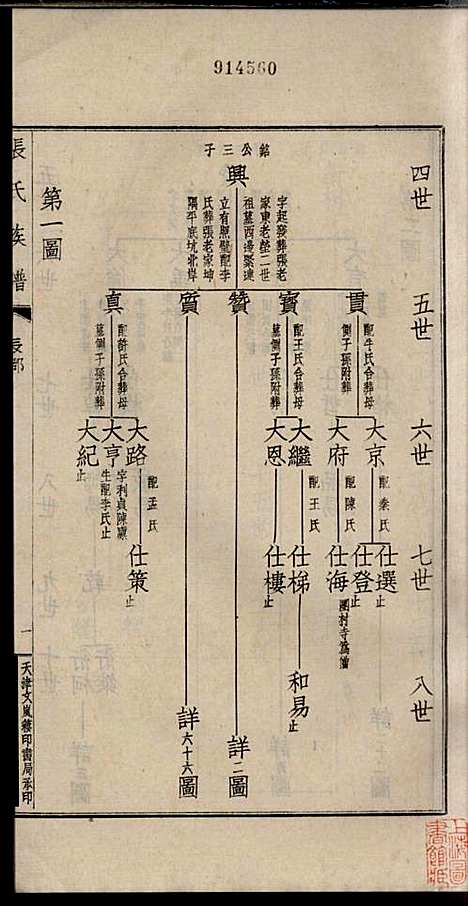 914560
四世
五世
六世
七世
八世
銘公三子
興
字起發葬張老
家東老塋二世
祖墓西邊緊連
立有照壁配李
氏葬張老家坤
隅平底坑北岸
貫
配牛氏合葬母
側子孫附葬
寶
配王氏合葬母
墓側子孫附葬
贊
質
真
配許氏合葬母
墓側子孫附葬
大京
配秦氏
大府
配陳氏
大繼
配王氏
大恩
止
大路
配孟氏
大亨
字利貞陳顯
生配李氏止
大紀
止
仕選
止
仕登
止
仕海
團村寺為僧
仕梯
仕樓
止
仕策
止
和易
止
詳二圖
詳六十六圖
第一圖
張氏族譜
辰部
一
天津文嵐簃印書局承印
上海圖
書館藏